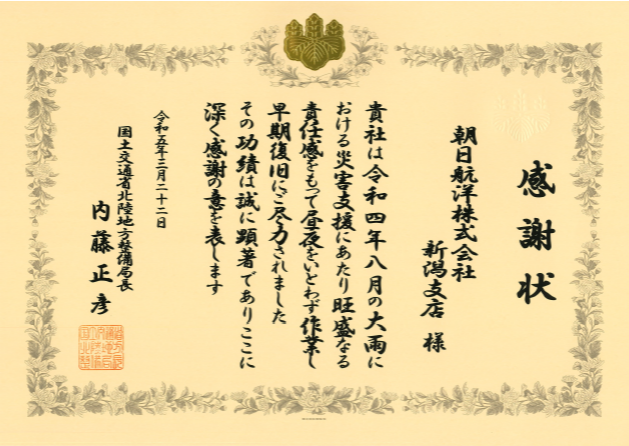 感謝状
朝日航洋株式会社
新潟支店 様
貴社は令和四年八月の大雨に
おける災害支援にあたり旺盛なる
責任感をもって昼夜をいとわず作業し
早期復旧にご尽力されました
その功績は誠に顕著でありここに
深く感謝の意を表します
令和五年三月二十二日
国土交通省北陸地方整備局長
内藤正彦